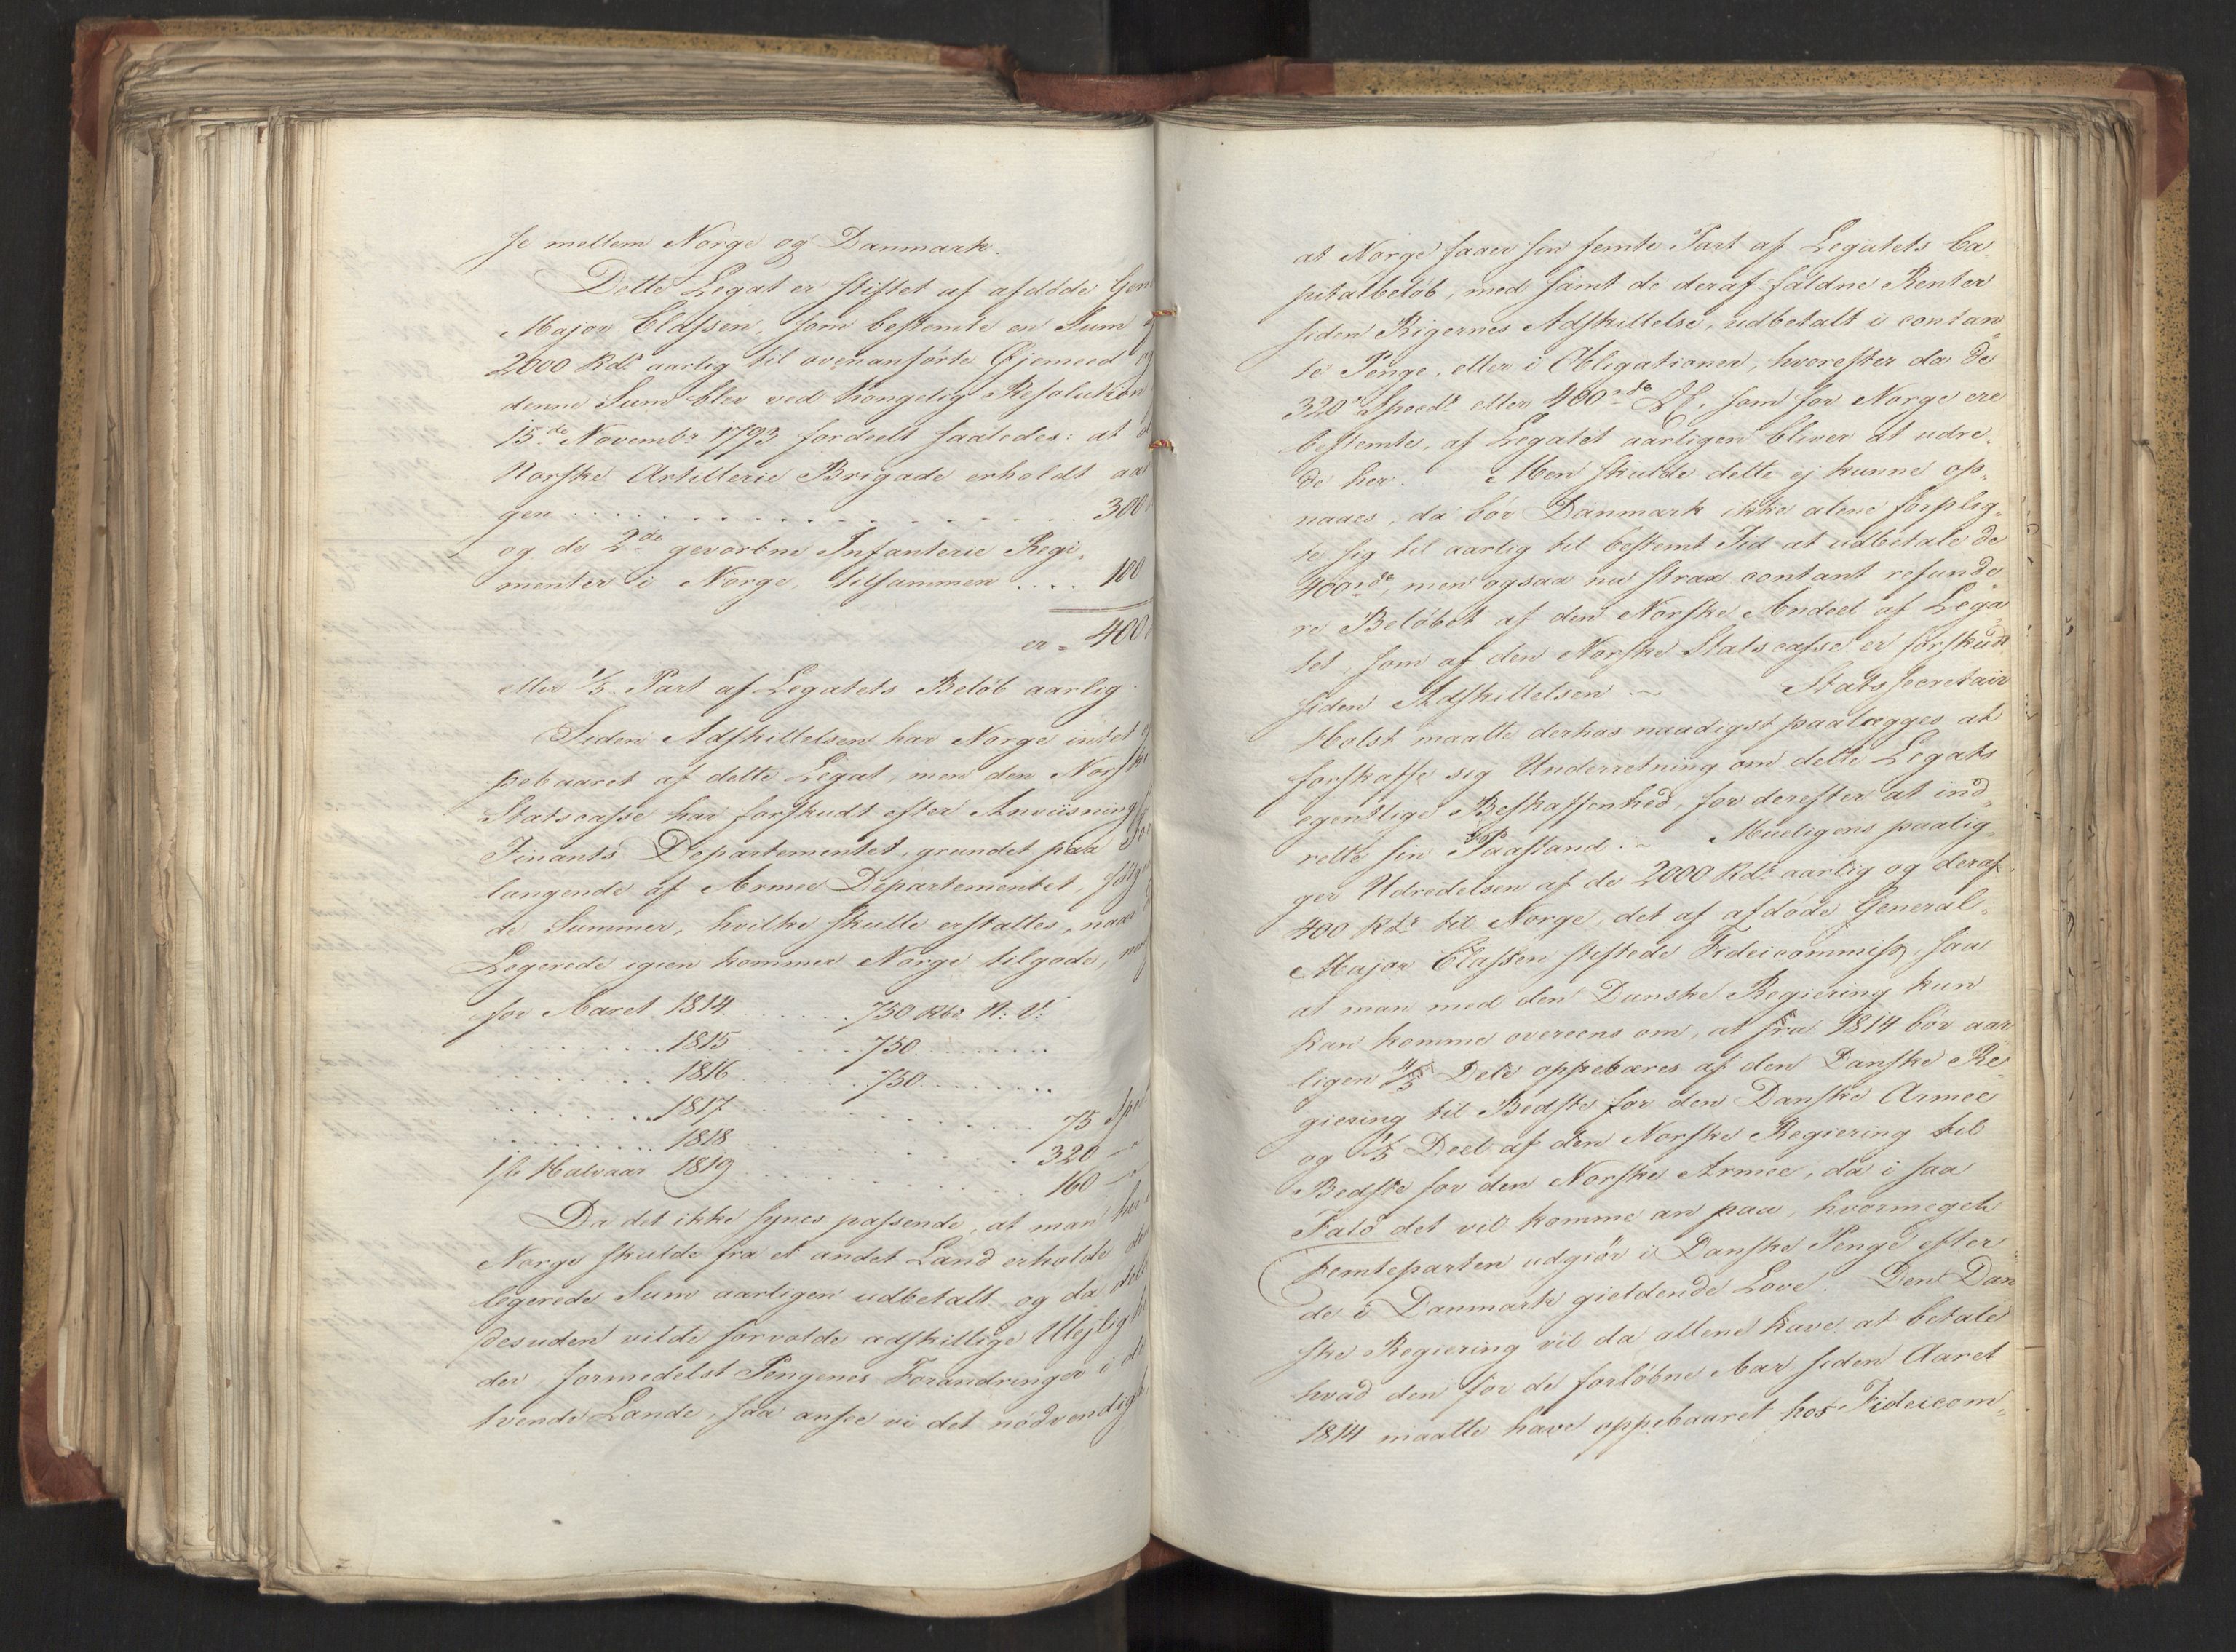 se mellem Norge og Danmark.
Dette Legat er stiftet af afdøde Gen
Major Classen, som bestemte en Sum
2000 Rdr aarlig til ovenanførte Øjemeed og
denne Sum blev ved Kongelig Resolution
15de Novembr 1793 fordeelt saaledes: at d
Norske Artillerie Brigade erholdt aar
gen . . . . . . . . . . . . . . . . 300
og de 2de gevorbne Infanterie Regi„
menter i Norge, tilsammen . . . . 100
er = 400
eller 1/5 Part af Legatets Beløb aarlig.
Siden Adskillelsen har Norge intet
pebaaret af dette Legat, men den Norske
Statscasse har forskudt efter Anviisning
Finants Departementet, grundet paa For
langende af Armee Departementet, følgen
de Summer, hvilke skulle erstattes, naar
Legerede igien kommer Norge tilgode,
for Aaret 1814 . . . . . . 750 Rbd. N: V:
. . . . . . . . 1815 . . . . . . 750 . . . . . . .
. . . . . . . . 1816 . . . . . . 750 . . . . . . .
. . . . . . . . 1817 . . . . . . . . . . . . 75 Spd
. . . . . . . . 1818 . . . . . . . . . . . . 320 — "
1ste Halvaar 1819 . . . . . . . . . . . . 160 — "
Da det ikke synes passende, at man her
Norge skulde fra et andet Land erholde den
legerede Sum aarligen udbetalt og da det
desuden vilde forvolde adskillige Ulejlig
der formedelst Pengenes Forandringer i de
tvende Lande, saa ansee vi det nødvendigt
at Norge faaer sin femte Part af Legatets Ca„
pitalbeløb, med samt de deraf faldne Renter
siden Rigernes Adskillelse, udbetalt i contan„
te Penge, eller i Obligationer, hvorefter da de
320 Speedr eller 400rde DC, som for Norge ere
bestemte, af Legatet aarligen bliver at udre„
de her. Men skulde dette ej kunne op„
naaes, da bør Danmark ikke alene forplig„
te sig til aarlig til bestemt Tid at udbetale de
400rde, men ogsaa nu strax contant refunde„
re Beløbet af den Norske Andeel af Lega„
tet, som af den Norske Statscasse er forskudt
siden Adskillelsen. ~ Statssecretair
Holst maatte derhos naadigst paalægges at
forskaffe sig Underretning om dette Legats
egentlige Beskaffenhed, for derefter at ind„
rette sin Paastand. ~ Mueligens paalig„
ger Udredelsen af de 2000 Rdr aarlig og deraf
400 Rdr til Norge, det af afdøde General„
Major Classen stiftede Fideicommiss, saa
at man med den Danske Regiering kun
kan komme overeens om, at fra 1814 bør aar„
ligen 4/5 Dele oppebæres af den Danske Re„
giering til Bedste for den Danske Armee
og 1/5 Deel af den Norske Regiering til
Bedste for den Norske Armee, da i saa
Fald det vil komme an paa, hvormeget
Femteparten udgiør i Danske Penge efter
de i Danmark gieldende Love. Den Dan
ske Regiering vil da allene have at betale
hvad den for de forløbne Aar siden Aaret
1814 maatte have oppebaaret hos Fideicom„